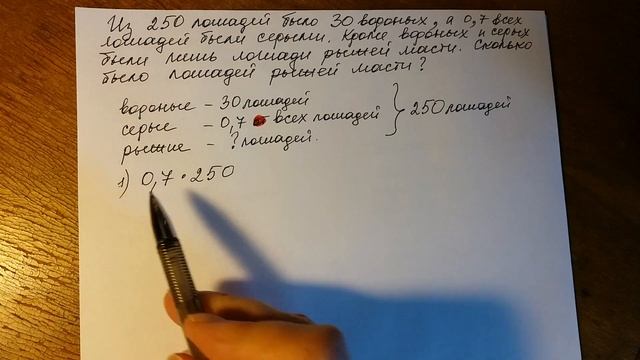 Из 250 лошадей было 30 вороных, а 0,7 всех
лошадей были серыми. Кроме вороных и серых
были лишь лошади рыжей масти. Сколько
было лошадей рыжей масти?
вороные – 30 лошадей
серые – 0,7 всех лошадей } 250 лошадей
рыжие – ? лошадей.
1) 0,7 · 250